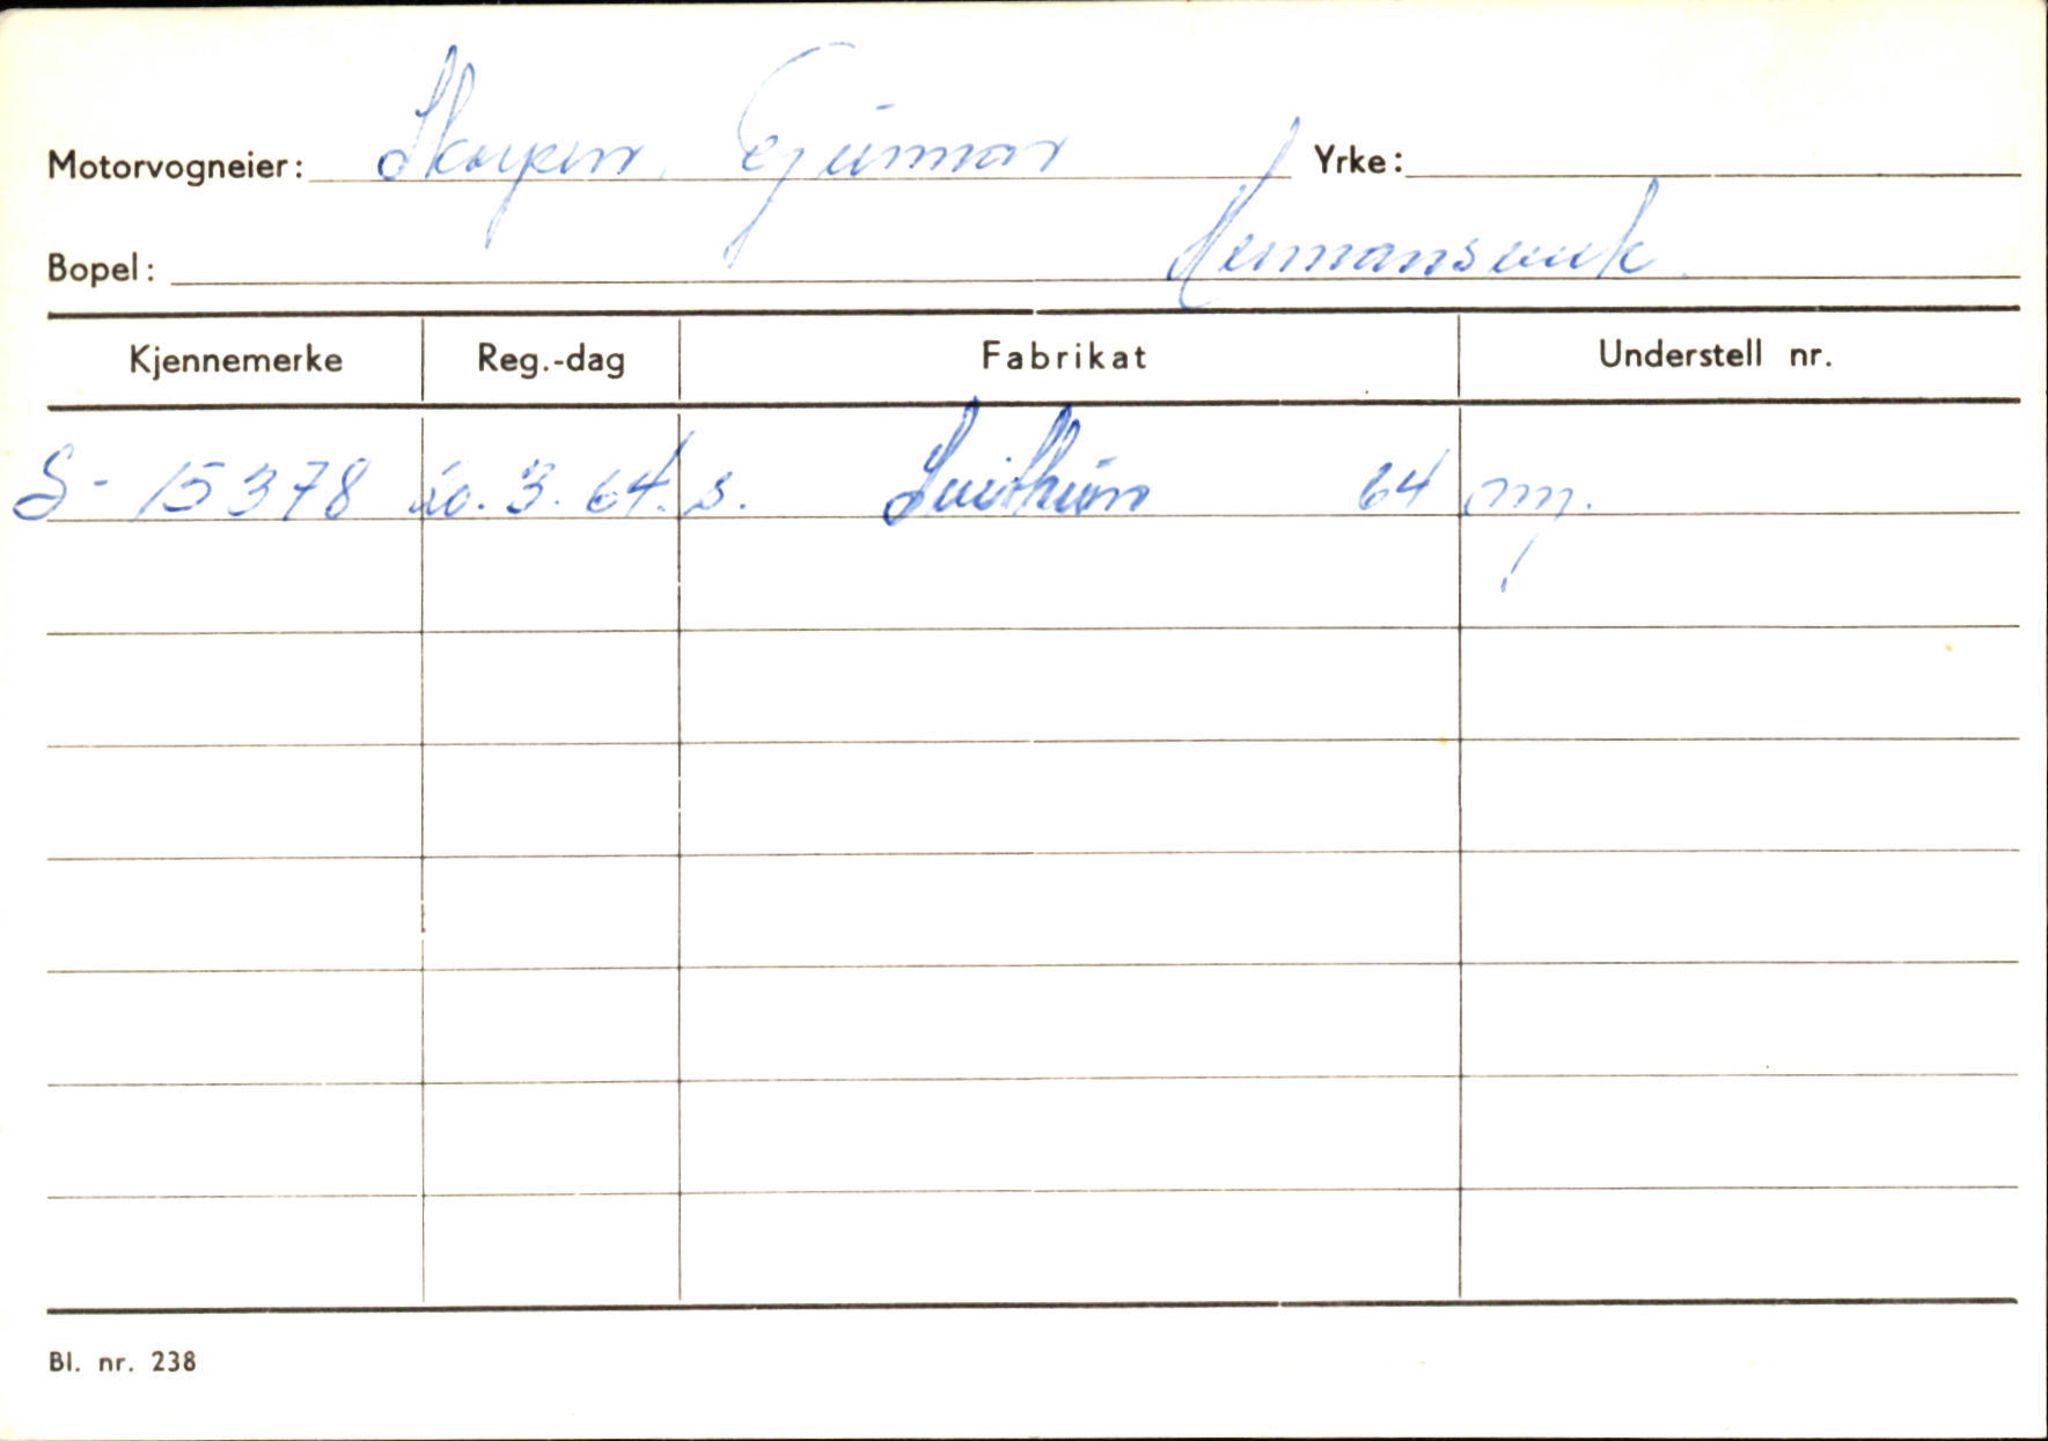 Motorvogneier: Skarpen, Gunnar Yrke:
Bopel: Hermansverk
Kjennemerke Reg.-dag Fabrikat Understell nr.
S- 15378 20.3.64. s. Svithun 64 my.
Bl. nr. 238